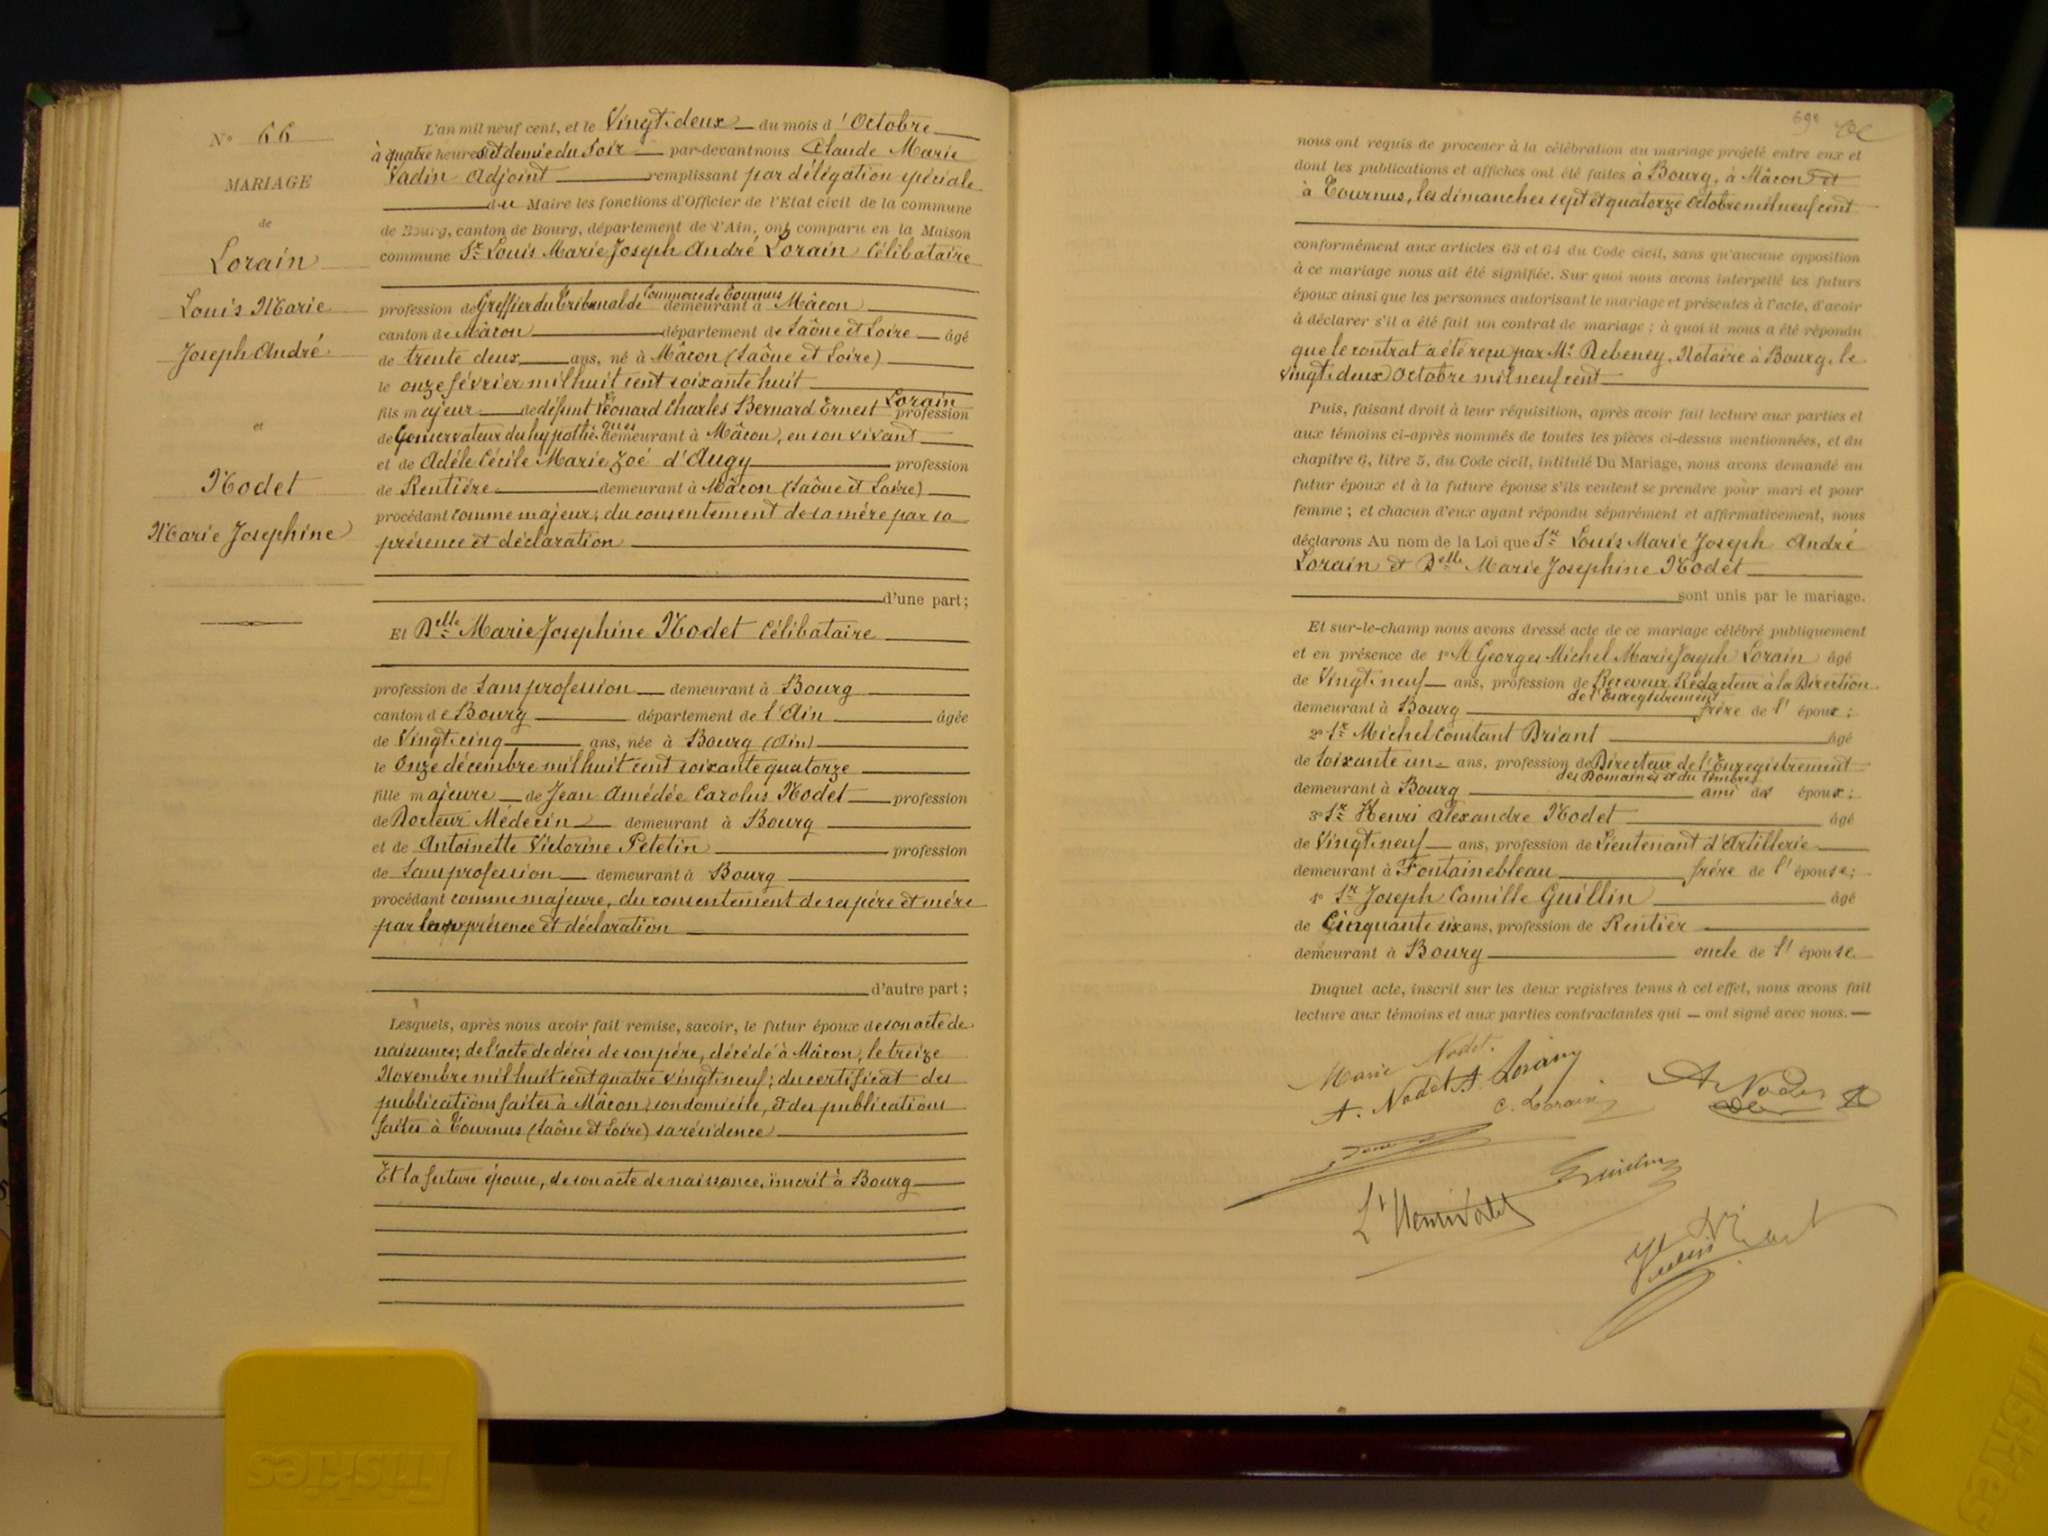 N° 66
MARIAGE
de
Lorain
Louis Marie
Joseph André
et
Nodet
Marie Josephine
L'an mil neuf cent, et le Vingt-deux du mois d'Octobre
à quatre heures et demie du Soir par-devant nous Claude Marie
Vadin Adjoint remplissant par délégation spéciale
du Maire les fonctions d'Officier de l'Etat civil de la commune
de Bourg, canton de Bourg, département de l'Ain, ont comparu en la Maison
commune Sr Louis Marie Joseph André Lorain Célibataire
profession de Greffier du Tribunal de Commerce de Tournus demeurant à Mâcon
canton de Mâcon département de Saône et Loire âgé
de trente deux ans, né à Mâcon (Saône et Loire)
le onze février mil huit cent soixante huit
fils majeur de défunt Léonard Charles Bernard Ernest Lorain profession
de Conservateur des hypothèques demeurant à Mâcon, en son vivant
et de Adéle Cécile Marie Zoé d'Augy profession
de Rentière demeurant à Mâcon (Saône et Loire)
procédant comme majeur, du consentement de sa mère par sa
présence et déclaration
d'une part;
Et Delle Marie Josephine Nodet Célibataire
profession de Sans profession demeurant à Bourg
canton de Bourg département de l'Ain âgée
de Vingt cinq ans, née à Bourg (Ain)
le Onze décembre mil huit cent soixante quatorze
fille majeure de Jean Amédée Carolus Nodet profession
de Docteur Médecin demeurant à Bourg
et de Antoinette Victorine Peletin profession
de Sans profession demeurant à Bourg
procédant comme majeure, du consentement de ses père et mère
par leur présence et déclaration
d'autre part;
Lesquels, après nous avoir fait remise, savoir, le futur époux de son acte de
naissance; de l'acte de décès de son père, décédé à Mâcon, le treize
Novembre mil huit cent quatre vingt neuf; du certificat des
publications faites à Mâcon, son domicile, et des publications
faites à Tournus (Saône et Loire) sa résidence
Et la future épouse, de son acte de naissance, inscrit à Bourg
nous ont requis de procéder à la célébration du mariage projeté entre eux et
dont les publications et affiches ont été faites à Bourg, à Mâcon et
à Tournus, les dimanches sept et quatorze Octobre mil neuf cent
conformément aux articles 63 et 64 du Code civil, sans qu'aucune opposition
à ce mariage nous ait été signifiée. Sur quoi nous avons interpellé les futurs
époux ainsi que les personnes autorisant le mariage et présentes à l'acte, d'avoir
à déclarer s'il a été fait un contrat de mariage; à quoi il nous a été répondu
que le contrat a été reçu par Me Rebeney, Notaire à Bourg, le
vingt-deux Octobre mil neuf cent
Puis, faisant droit à leur réquisition, après avoir fait lecture aux parties et
aux témoins ci-après nommés de toutes les pièces ci-dessus mentionnées, et du
chapitre 6, titre 5, du Code civil, intitulé Du Mariage, nous avons demandé au
futur époux et à la future épouse s'ils veulent se prendre pour mari et pour
femme; et chacun d'eux ayant répondu séparément et affirmativement, nous
déclarons Au nom de la Loi que Sr Louis Marie Joseph André
Lorain et Delle Marie Josephine Nodet
sont unis par le mariage.
Et sur-le-champ nous avons dressé acte de ce mariage célébré publiquement
et en présence de 1° M Georges Michel Marie Joseph Lorain âgé
de Vingt neuf ans, profession de Receveur Rédacteur à la Direction
de l'Enregistrement
demeurant à Bourg frère de l'époux;
2° Sr Michel Constant Briant âgé
de Soixante un ans, profession de Directeur de l'Enregistrement
des Domaines et du timbre
demeurant à Bourg ami des époux;
3° Sr Henri Alexandre Nodet âgé
de Vingt neuf ans, profession de Lieutenant d'Artillerie
demeurant à Fontainebleau frère de l'épouse;
4° Sr Joseph Camille Guillin âgé
de Cinquante six ans, profession de Rentier
demeurant à Bourg oncle de l'épouse
Duquel acte, inscrit sur les deux registres tenus à cet effet, nous avons fait
lecture aux témoins et aux parties contractantes qui ont signé avec nous.
Marie Nodet.
A. Nodet A. Lorain
C. Lorain
A Nodet
Lt Henri Nodet
Guillin
Friskies